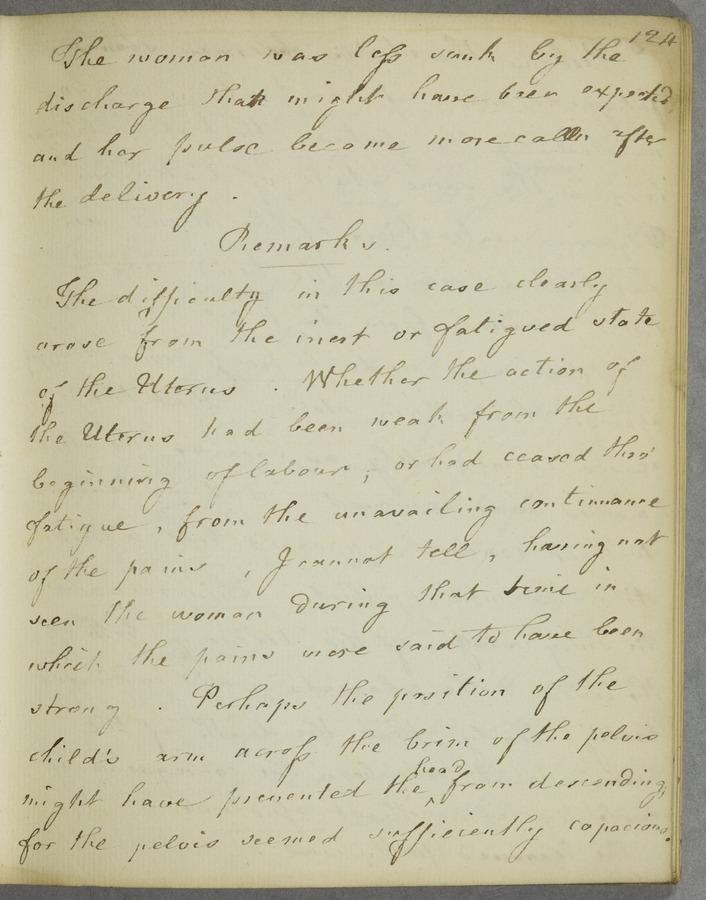 124
The woman was less sunk by the
discharge than might have been expected,
and her pulse became more calm after
the delivery.
Remarks.
The difficulty in this case clearly
arose from the inert or fatigued state
of the Uterus. Whether the action of
the Uterus had been weak from the
beginning of labour, or had ceased thro'
fatigue, from the unavailing continuance
of the pains, I cannot tell, having not
seen the woman during that time in
which the pains were said to have been
strong. Perhaps the position of the
child's arm across the brim of the pelvis
might have prevented the head from descending,
for the pelvis seemed sufficiently capacious.